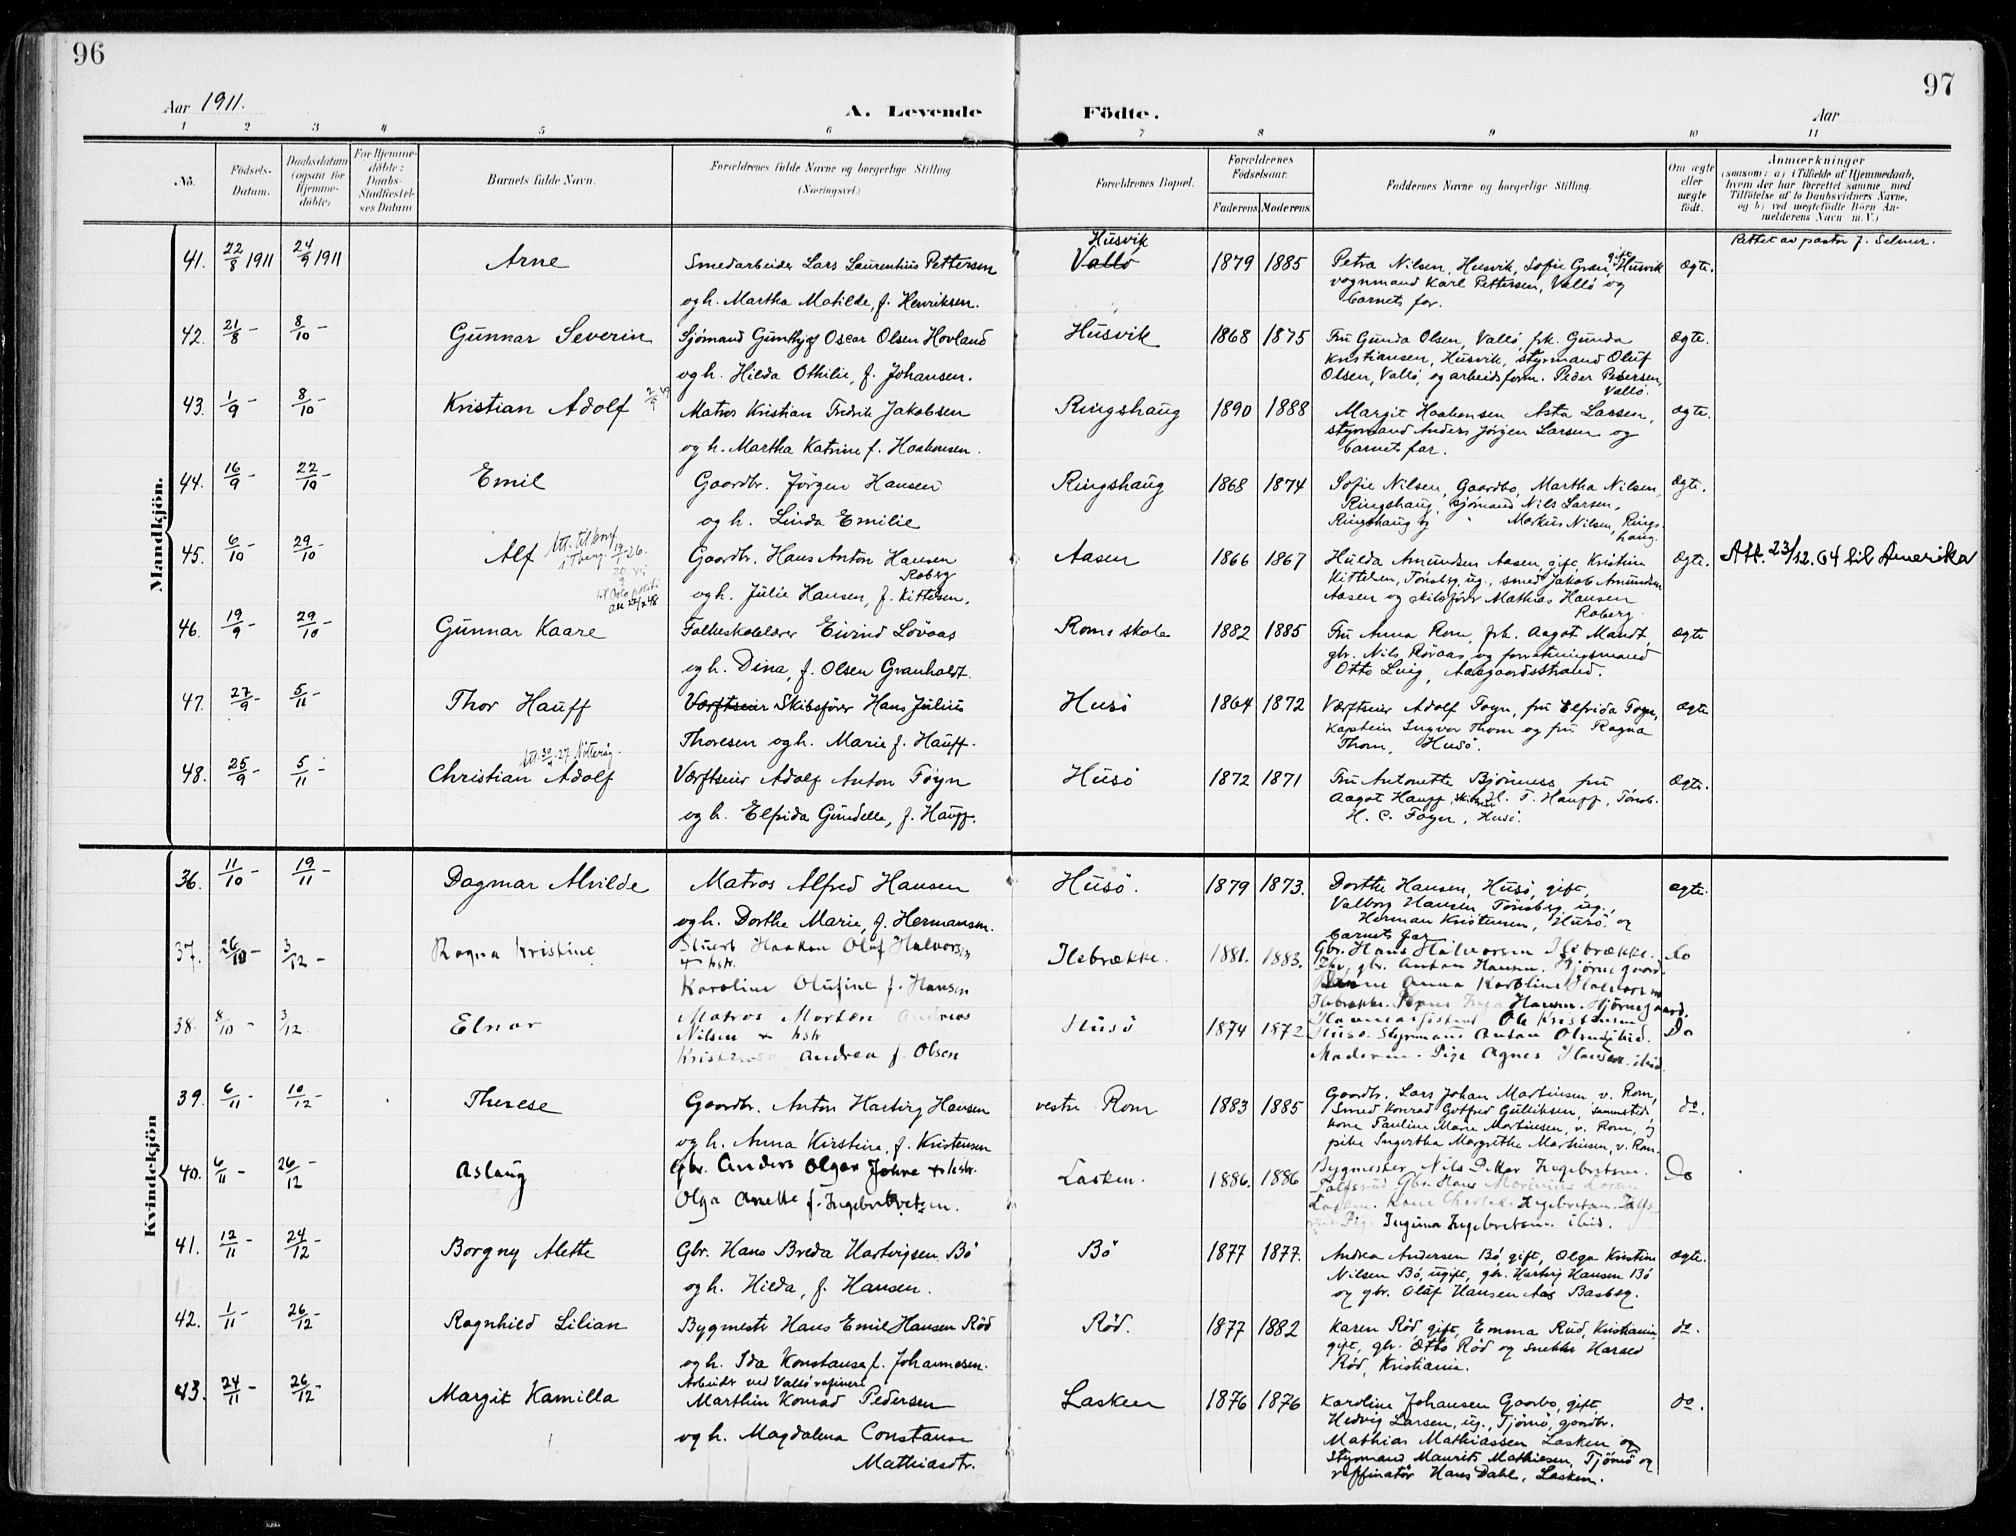 96
97
Aar 1911.
A. Levende Födte.
Aar
1 2 3 4 5 6 7 8 9 10 11
No.
Födsels-Datum.
Daabsdatum (ogsaa for Hjemme-døbte)
For Hjemme-døbte: Daabs-Stadfæstel-ses Datum
Barnets fulde Navn.
Forældrenes fulde Navne og borgerlige Stilling.
(Næringsvei.)
Forældrenes Bopæl.
Forældrenes Födselsaar.
Faderens. Moderens.
Faddernes Navne og borgerlige Stilling.
Om ægte eller uægte födt.
Anmærkninger
(saasom: a) i Tilfælde af Hjemmedaab,
hvem der har forrettet samme med
Tilföielse af to Daabsvidners Navne,
og b) ved uægtefödte Börn An-
melderens Navn m.V.)
Mandkjön.
Rettet av pastor J. Selmer.
41. 22/8 1911 24/9 1911 Arne Smedarbeider Lars Laurentius Pettersen Husvik Vallö 1879 1885 Petra Nilsen, Husvik, Sofie Gran, gift, Husvik ægte.
og h. Martha Matilde, f. Henriksen. vognmand Karl Pettersen, Vallö og
barnets far.
42. 21/8 - 8/10 - Gunnar Severin Sjømand Oscar Olsen Hovland Husvik 1868 1875 Fru Gunda Olsen, Vallö, frk. Gunda ægte.
og h. Hilda Othilie, f. Johansen. Kristiansen, Husvik, styrmand Oluf
Olsen, Vallö, og arbeidsform. Peder Pedersen,
Vallö.
43. 1/9 - 8/10 - Kristian Adolf Matros Kristian Fredrik Jakobsen Ringshaug 1890 1888 Margit Haakonsen Asta Larsen, ægte.
og h. Martha Katrine f. Haakonsen. styrmand Anders Jörgen Larsen og
barnets far.
44. 16/9 - 22/10 - Emil Gaardbr. Jörgen Hansen Ringshaug 1868 1874 Sofie Nilsen, Gaardbo, Martha Nilsen, ægte.
og h. Linda Emilie Ringshaug, sjømand Nils Larsen,
Ringshaug og " Markus Nilsen, Rings-
haug.
45. 6/10 - 29/10 - Alf Gaardbr. Hans Anton Hansen Aasen 1866 1867 Hulda Amundsen Aasen, gift, Kristine ægte. Att. 23/12.64 til Amerika
Roberg
og h. Julie Hansen, f. Kittelsen. Kittelsen, Tönsbg, ug., smed Jakob Amundsen
Aasen og skibsförer Mathias Hansen
Roberg
46. 19/9 - 29/10 - Gunnar Kaare Folkeskolelærer Eivind Lövaas Roms skole 1882 1885 Fru Anna Rom, frk. Aagot Mandt, ægte
og h. Dina, f. Olsen Granholdt. gbr. Nils Rövaas og forretningsmand
Otto Lvig, Aasgaardsstrand.
47. 27/9 - 5/11 - Thor Hauff Værftseier Skibsförer Hans Julius Husö 1864 1872 Værftseier Adolf Foyn, fru Elfrida Foyn, ægte
Thoresen og h. Marie f. Hauff. Kaptein Ingvar Thom og fru Ragna
Thom, Husö.
Att. 30/9-27 Nötteröy.
48. 25/9 - 5/11 - Christian Adolf Værftseier Adolf Anton Föyn Husö 1872 1871 Fru Antonette Bjönness, fru ægte.
og h. Elfrida Gundelle, f. Hauff. Aagot Hauff, H. T. Hauff, Tönsb.
H. C. Foyn, Husö.
Kvindekjön
36. 11/10 - 19/11 - Dagmar Alvilde Matros Alfred Hansen Husö. 1879 1873. Dorthe Hansen, Husö, gift, ægte.
og h. Dorthe Marie, f. Hermansen. Valborg Hansen, Tönsberg, ug.,
Herman Kristensen, Husö. og
barnets far
37. 26/10 - 3/12 - Ragna Kristine Stuert Haakon Olaf Halvorsen Ilebrække. 1881. 1883. Gbr. Hans Halvorsen Ilebrække. Do
+ hstr.
Karoline Olufine f. Hansen gbr. Anton Hansen. Hjörnegaard.
Anna Karoline Halvorsen
Ilebrække. Inga Hansen. Hjörnegaard.
38. 8/10 - 3/12. Elnar Matros Morten Andreas Husö 1874 1872 Ole Kristensen Do
Nilsen + hstr Husö. Styrmand Anton Olsen ibid.
Andrea f. Olsen Moderen. Pige Agnes Hansen. ibid.
39. 6/11 - 10/12 - Therese Gaardbr. Anton Hartvig Hansen vestre Rom 1883 1885 Gaardbr. Lars Johan Martinsen, v. Rom, do.
og h. Anna Kirstine, f. Kristensen Smed Konrad Gotfred Gulliksen, sammested.
kone Pauline Marie Martinsen, v. Rom, og
pike Ingertha Margrethe Martinsen, v. Rom.
40. 6/11 - 26/12 - Aslaug Gbr. Anders Olgar Johre + hstr. Lasken. 1886. 1886 Bygmester Nils Petter Ingebretsen. Do
Olga Anette f. Ingebretsen. Gbr. Hans Marinius Larsen
Lasken. Kone Charlotte Ingebretsen.
Pige Ingima Ingebretsen. ibid.
41. 12/11 - 24/12 - Borgny Alette Gbr. Hans Breda Hartvigsen Bö Bö 1877 1877. Andrea Andersen Bö, gift, Olga Kristine ægte.
og h. Hilda, f. Hansen. Nilsen Bö, ugift, gbr. Hartvig Hansen Bö
og gbr. Olaf Hansen Aas Basberg.
42. 1/11 - 26/12 - Ragnhild Lilian Bygmestr Hans Emil Hansen Röd Röd. 1877 1882 Karen Röd, gift, Emma Rud, Kristiania, do.
og h. Ida Konstanse f. Johannesen. gift, gbr. Otto Röd og snekker Harald
Röd, Kristiania.
Arbeider ved Vallö raffineri
43. 24/11 - 26/12 - Margit Kamilla Marthin Konrad Pedersen Lasken 1876 1876 Karoline Johansen Gaarbo, gift, do.
og h. Magdalena Constanse Hedvig Larsen, ug., Tjömö, gaardbr.
Mathiasdtr. Mathias Mathiassen Lasken og
Styrmand Maurits Mathiesen, Tjömö og
raffinatör Hans Dahl, Lasken.